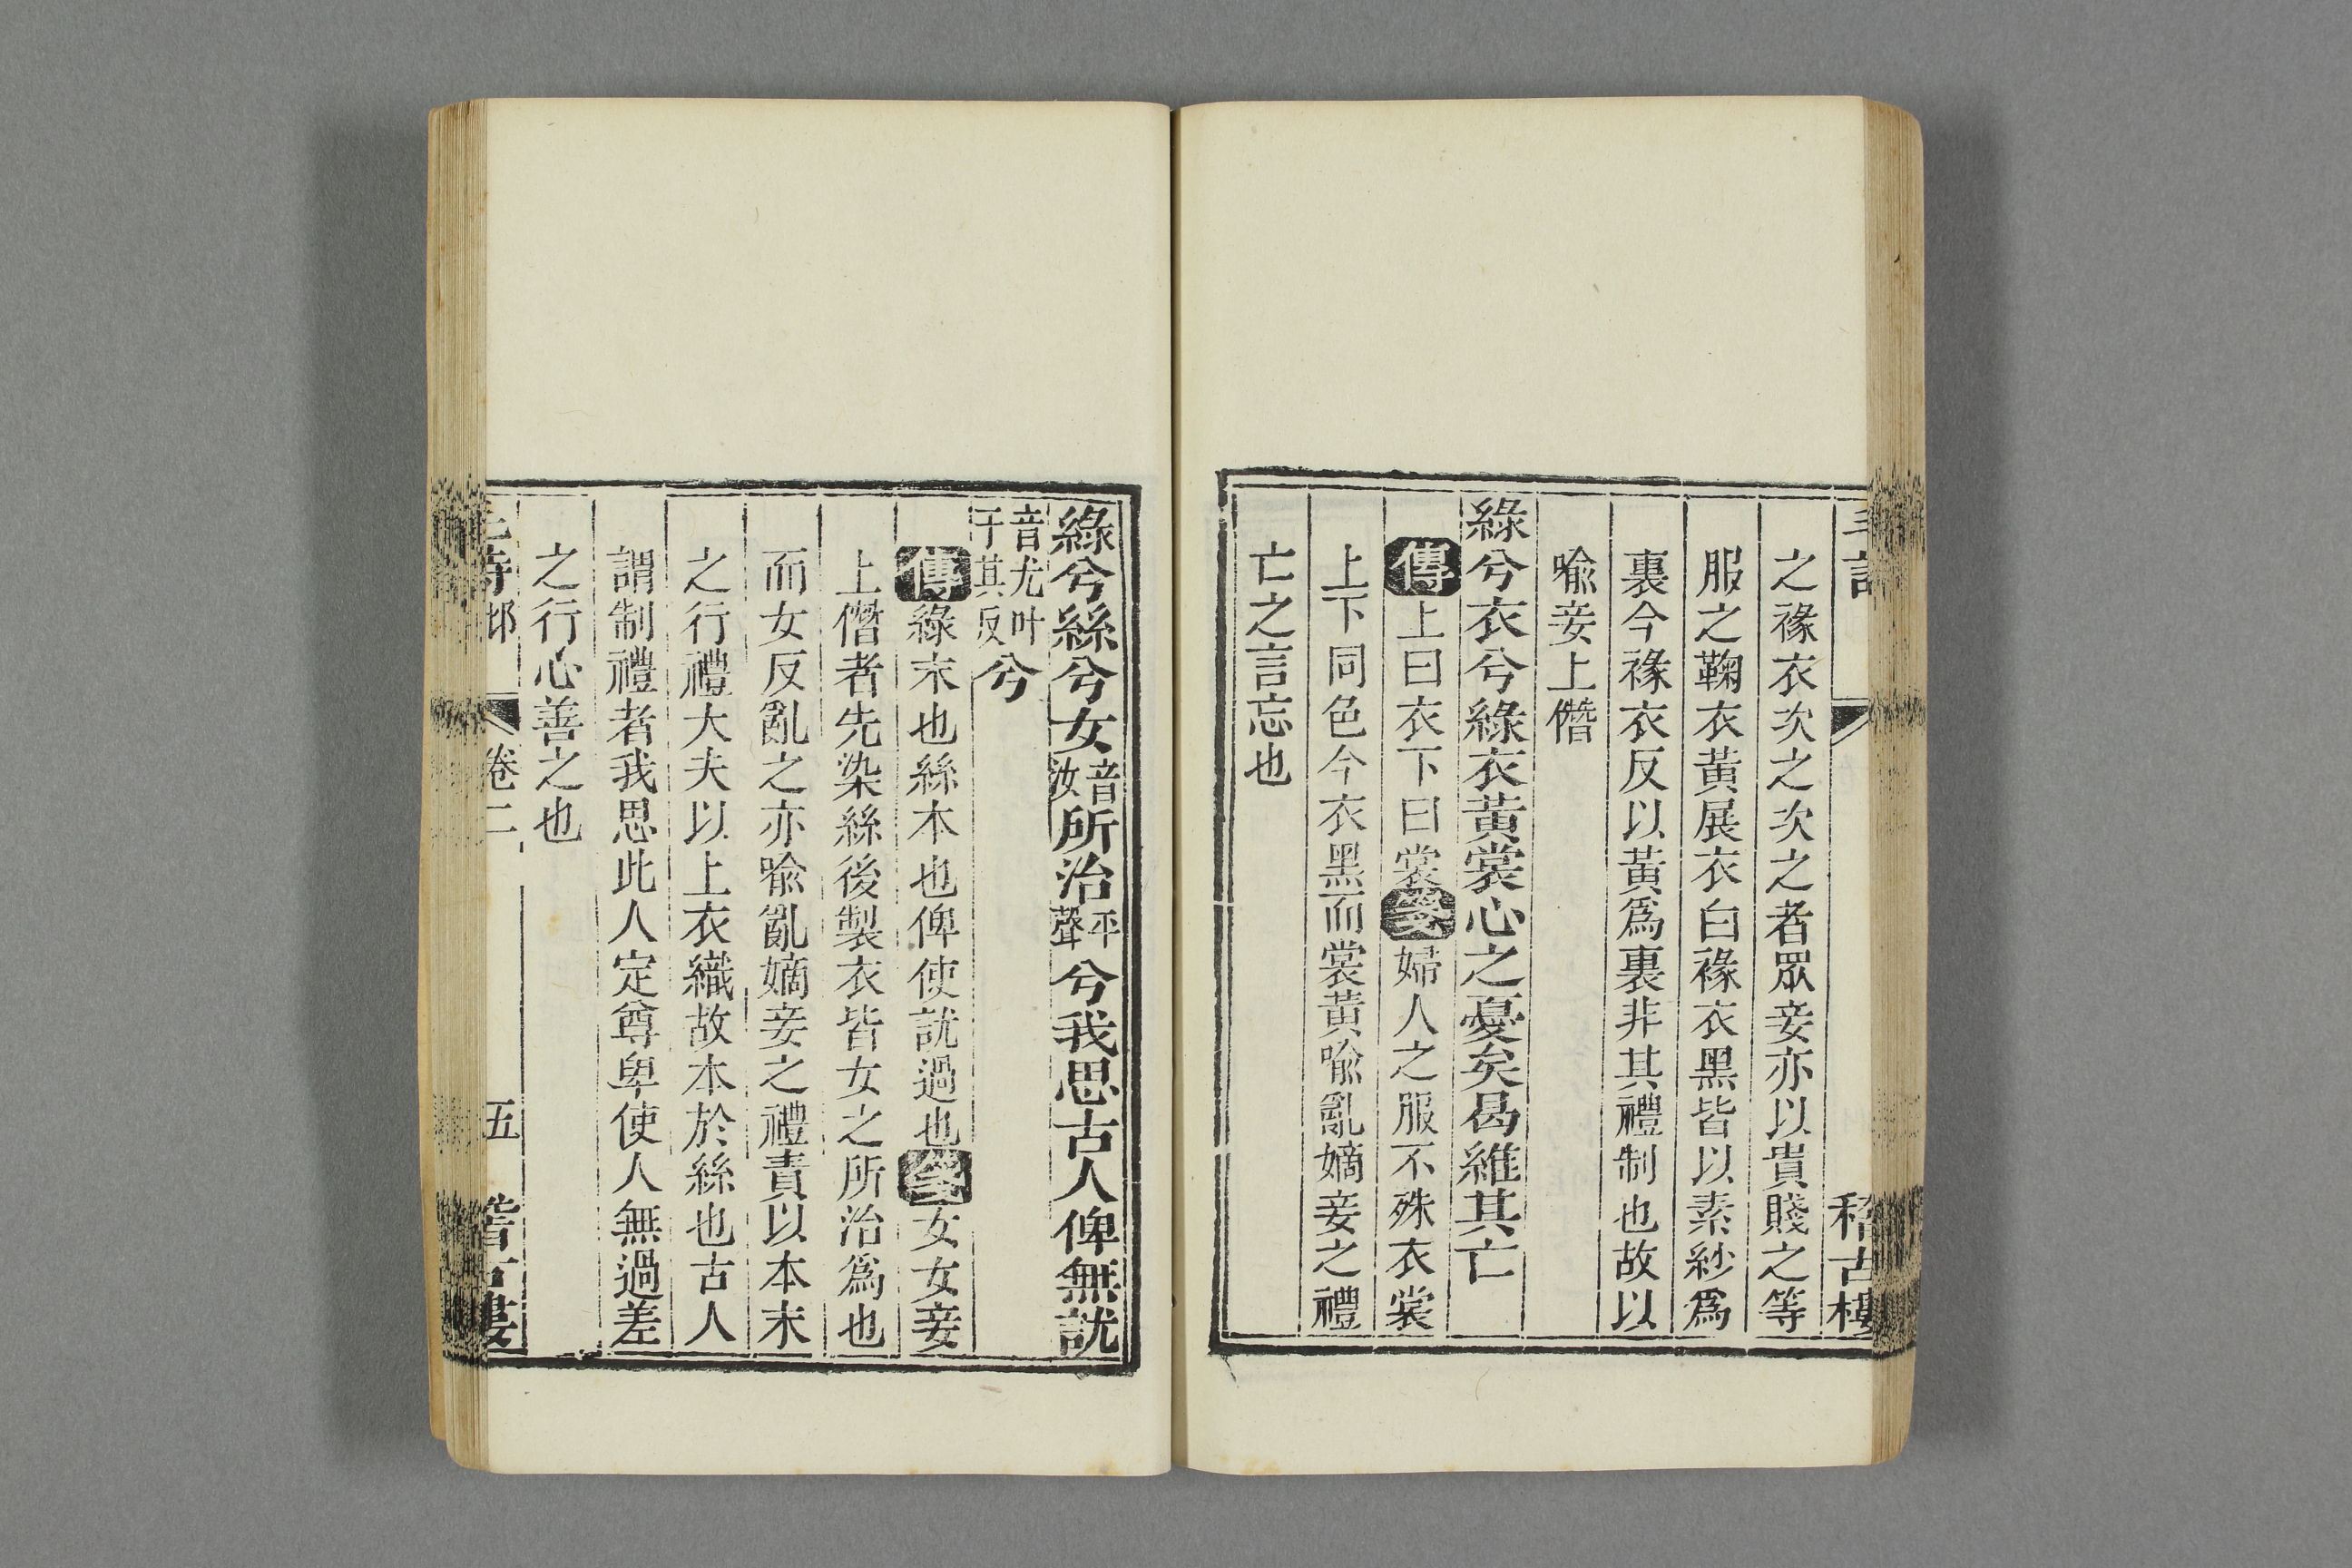 毛詩
稽古樓
之褖衣次之次之者眾妾亦以貴賤之等
服之鞠衣黃展衣白褖衣黑皆以素紗爲
裏今褖衣反以黃爲裏非其禮制也故以
喩妾上僭
綠兮衣兮綠衣黃裳心之憂矣曷維其亡
傳上曰衣下曰裳箋婦人之服不殊衣裳
上下同色今衣黑而裳黃喩亂嫡妾之禮
亡之言忘也
綠兮絲兮女音汝所治平聲兮我思古人俾無訧
音尤叶于其反兮
傳綠末也絲本也俾使訧過也箋女女妾
上僭者先染絲後製衣皆女之所治爲也
而女反亂之亦喩亂嫡妾之禮責以本末
之行禮大夫以上衣織故本於絲也古人
謂制禮者我思此人定尊卑使人無過差
之行心善之也
毛詩邶
卷二
五
稽古樓